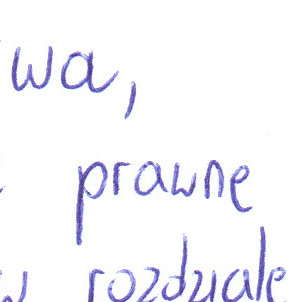 wa,
prawnę
w rozdziale